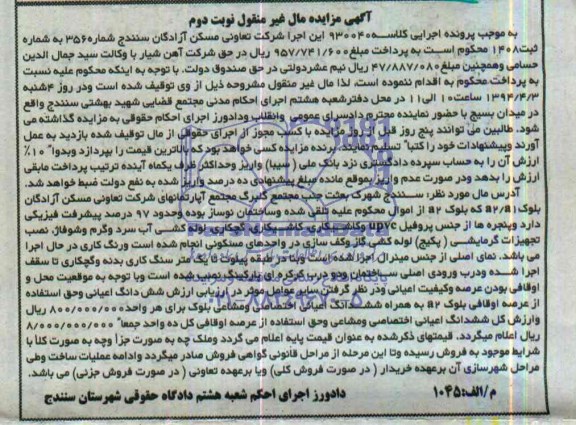 آگهی مزایده مال غیر منقول نوبت دوم
به موجب پرونده اجرایی کلاسه ۹۳۰۰۴۰ این اجرا شرکت تعاونی مسکن آزادگان سنندج شماره ۳۵۶ به شماره
ثبت ۱۴۰۸ محکوم است به پرداخت مبلغ ۹۵۷/۷۴۱/۶۰۰ ریال در حق شرکت آهن شیار با وکالت سید جمال الدین
حسامی وهمچنین مبلغ ۴۷/۸۸۷/۰۸۰ ریال نیم عشردولتی در حق صندوق دولت. با توجه به اینکه محکوم علیه نسبت
به پرداخت محکوم به اقدام ننموده است، لذا مال غیر منقول مشروحه ذیل از وی توقیف شده است ودر روز ۴شنبه
۱۳۹۴/۴/۳ ساعت ۱۰ الی ۱۱ در محل دفترشعبه هشتم اجرای احکام مدنی مجتمع قضایی شهید بهشتی سنندج واقع
در میدان بسیج با حضور نماینده محترم دادسرای عمومی وانقلاب ودادورز اجرای احکام حقوقی به مزایده گذاشته می
شود. طالبین می توانند پنج روز قبل از روز مزایده با کسب مجوز از اجرای حقوقی از مال توقیف شده بازدید به عمل
آورند وپیشنهادات خود را کتبا" تسلیم نمایند. برنده مزایده کسی خواهد بود که بالاترین قیمت را بپردازد وبدوا" ۱۰٪
ارزش آن را به حساب سپرده دادگستری نزد بانک ملی ( سیبا) واریز وحداکثر ظرف یکماه آینده ترتیب پرداخت مابقی
ارزش را بدهد ودر صورت عدم واریز بموقع مانده مبلغ پیشنهادی ده درصد واریز شده به نفع دولت ضبط خواهد شد.
آدرس مال مورد نظر: سنندج شهرک بعثت جنب مجتمع گلبرگ مجتمع آپارتمانهای شرکت تعاونی مسکن آزادگان
بلوک a۲/a۱ که بلوک a۲ از اموال محکوم علیه تلقی شده وساختمان نوساز بوده وحدود ۹۷ درصد پیشرفت فیزیکی
دارد وپنجره ها از جنس پروفیل upvc وکاشیکاری، کاشیکاری، آجرکاری، لوله کشی آب سرد وگرم وشوفاژ، نصب
تجهیزات گرمایشی ( پکیج) لوله کشی گاز وکف سازی در واحدهای مسکونی انجام شده است ورنگ کاری در حال اجرا
می باشد. نمای اصلی از جنس مینرال اجرا شده است وبا در طبقه پیلوت یک متر سنگ کاری بدنه وگچکاری تا سقف
اجرا شده ودرب ورودی اصلی ساختمان ودو درب کرکره ای پارکینگ نصب شده است وبا توجه به موقعیت محل و
اوقافی بودن عرصه وکیفیت اعیانی ودر نظر گرفتن سایر عوامل موثر در ارزیابی ارزش شش دانگ اعیانی وحق استفاده
از عرصه اوقافی بلوک a۲ به همراه ششدانگ اعیانی اختصاصی ومشاعی بلوک برای هر واحد ۸۰۰/۰۰۰/۰۰۰ ریال
وارزش کل ششدانگ اعیانی اختصاصی ومشاعی وحق استفاده از عرصه اوقافی کل ده واحد جمعا" ۸/۰۰۰/۰۰۰/۰۰۰
ریال اعلام میگردد. قیمتهای ذکرشده به عنوان قیمت پایه اعلام می گردد وملک چه به صورت جزأ وچه به صورت کلأ با
شرایط موجود به فروش رسیده وتا این مرحله از مراحل قانونی گواهی فروش صادر میگردد وادامه عملیات ساخت وطی
مراحل شهرسازی آن برعهده خریدار ( در صورت فروش کلی) ویا برعهده تعاونی ( در صورت فروش جزئی) می باشد.
م/الف: ۱۰۴۵ دادورز اجرای احکم شعبه هشتم دادگاه حقوقی شهرستان سنندج